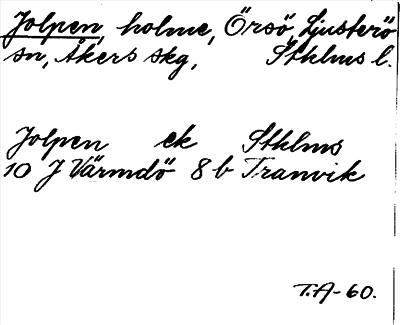 Jolpen, holme, Örsö, Ljusterö
sn, Åkers skg, Sthlms l.
Jolpen ek Sthlms
10 J Värmdö 8 b Tranvik
T.A-60.